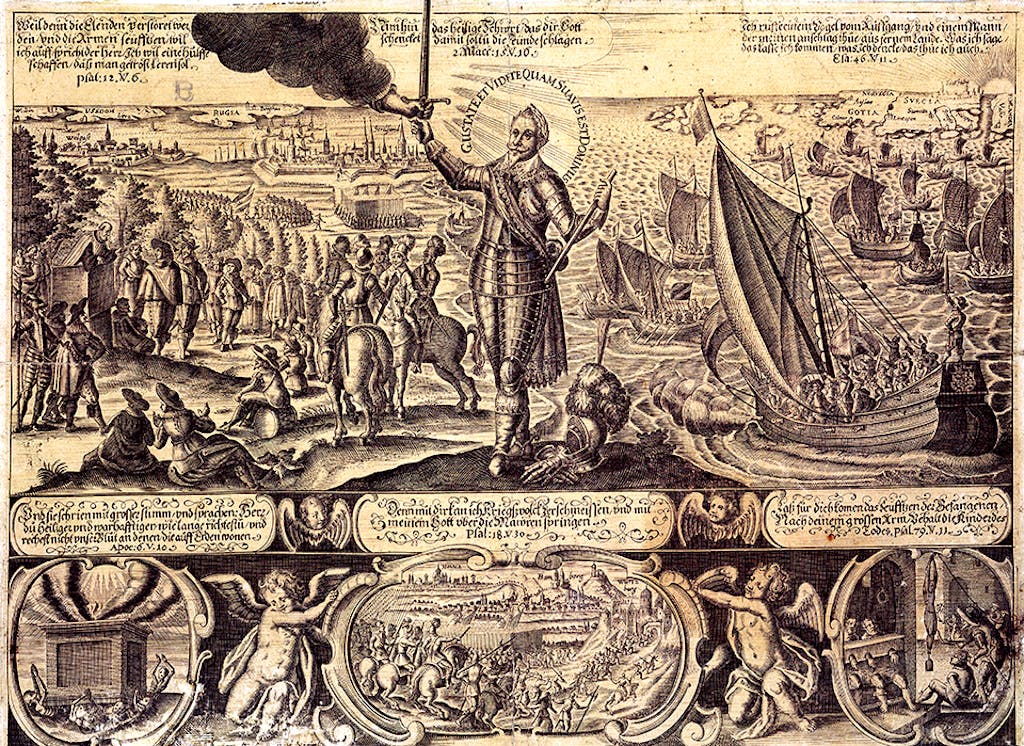 Weil denn die Elenden verstöret wer
den, vnd die Armen seufftzen, wil
ich auff, spricht der Herr, Ich wil eine hülffe
schaffen, daß man getrost leren sol.
psal: 12. V. 6.
Nim hin das heilige Schwert, das dir Gott
schencket damit soltu die Feinde schlagen.
2. Macc: 15. V. 16.
Ich ruffe einem Vogel vom Auffgang, vnd einem Mann
der meinen anschlag thue, aus fernem Lande. Was ich sage
das lasse ich kommen, was ich dencke das thue ich auch.
Esa: 46. V. 11.
GUSTATE ET VIDETE QUAM SUAVIS EST DOMINUS
USEDOM
RUGIA
SVECIA
GOTIA
Vnd sie schrien mit grosser stimm, vnd sprachen: Herr
du heiliger vnd warhafftiger, wie lange richtestu, vnd
rechest nicht vnser Blut an denen die auff Erden wonen.
Apoc: 6. V. 10.
Denn mit dir kan ich Kriegsvolck zerschmeissen, vnd mit
meinem Gott vber die Mauren springen.
Psal: 18. V. 30.
Laß für dich komen das seufftzen der Gefangenen
Nach deinem grossen Arm, behalt die Kinder des
Todes, psal. 79. V. 11.